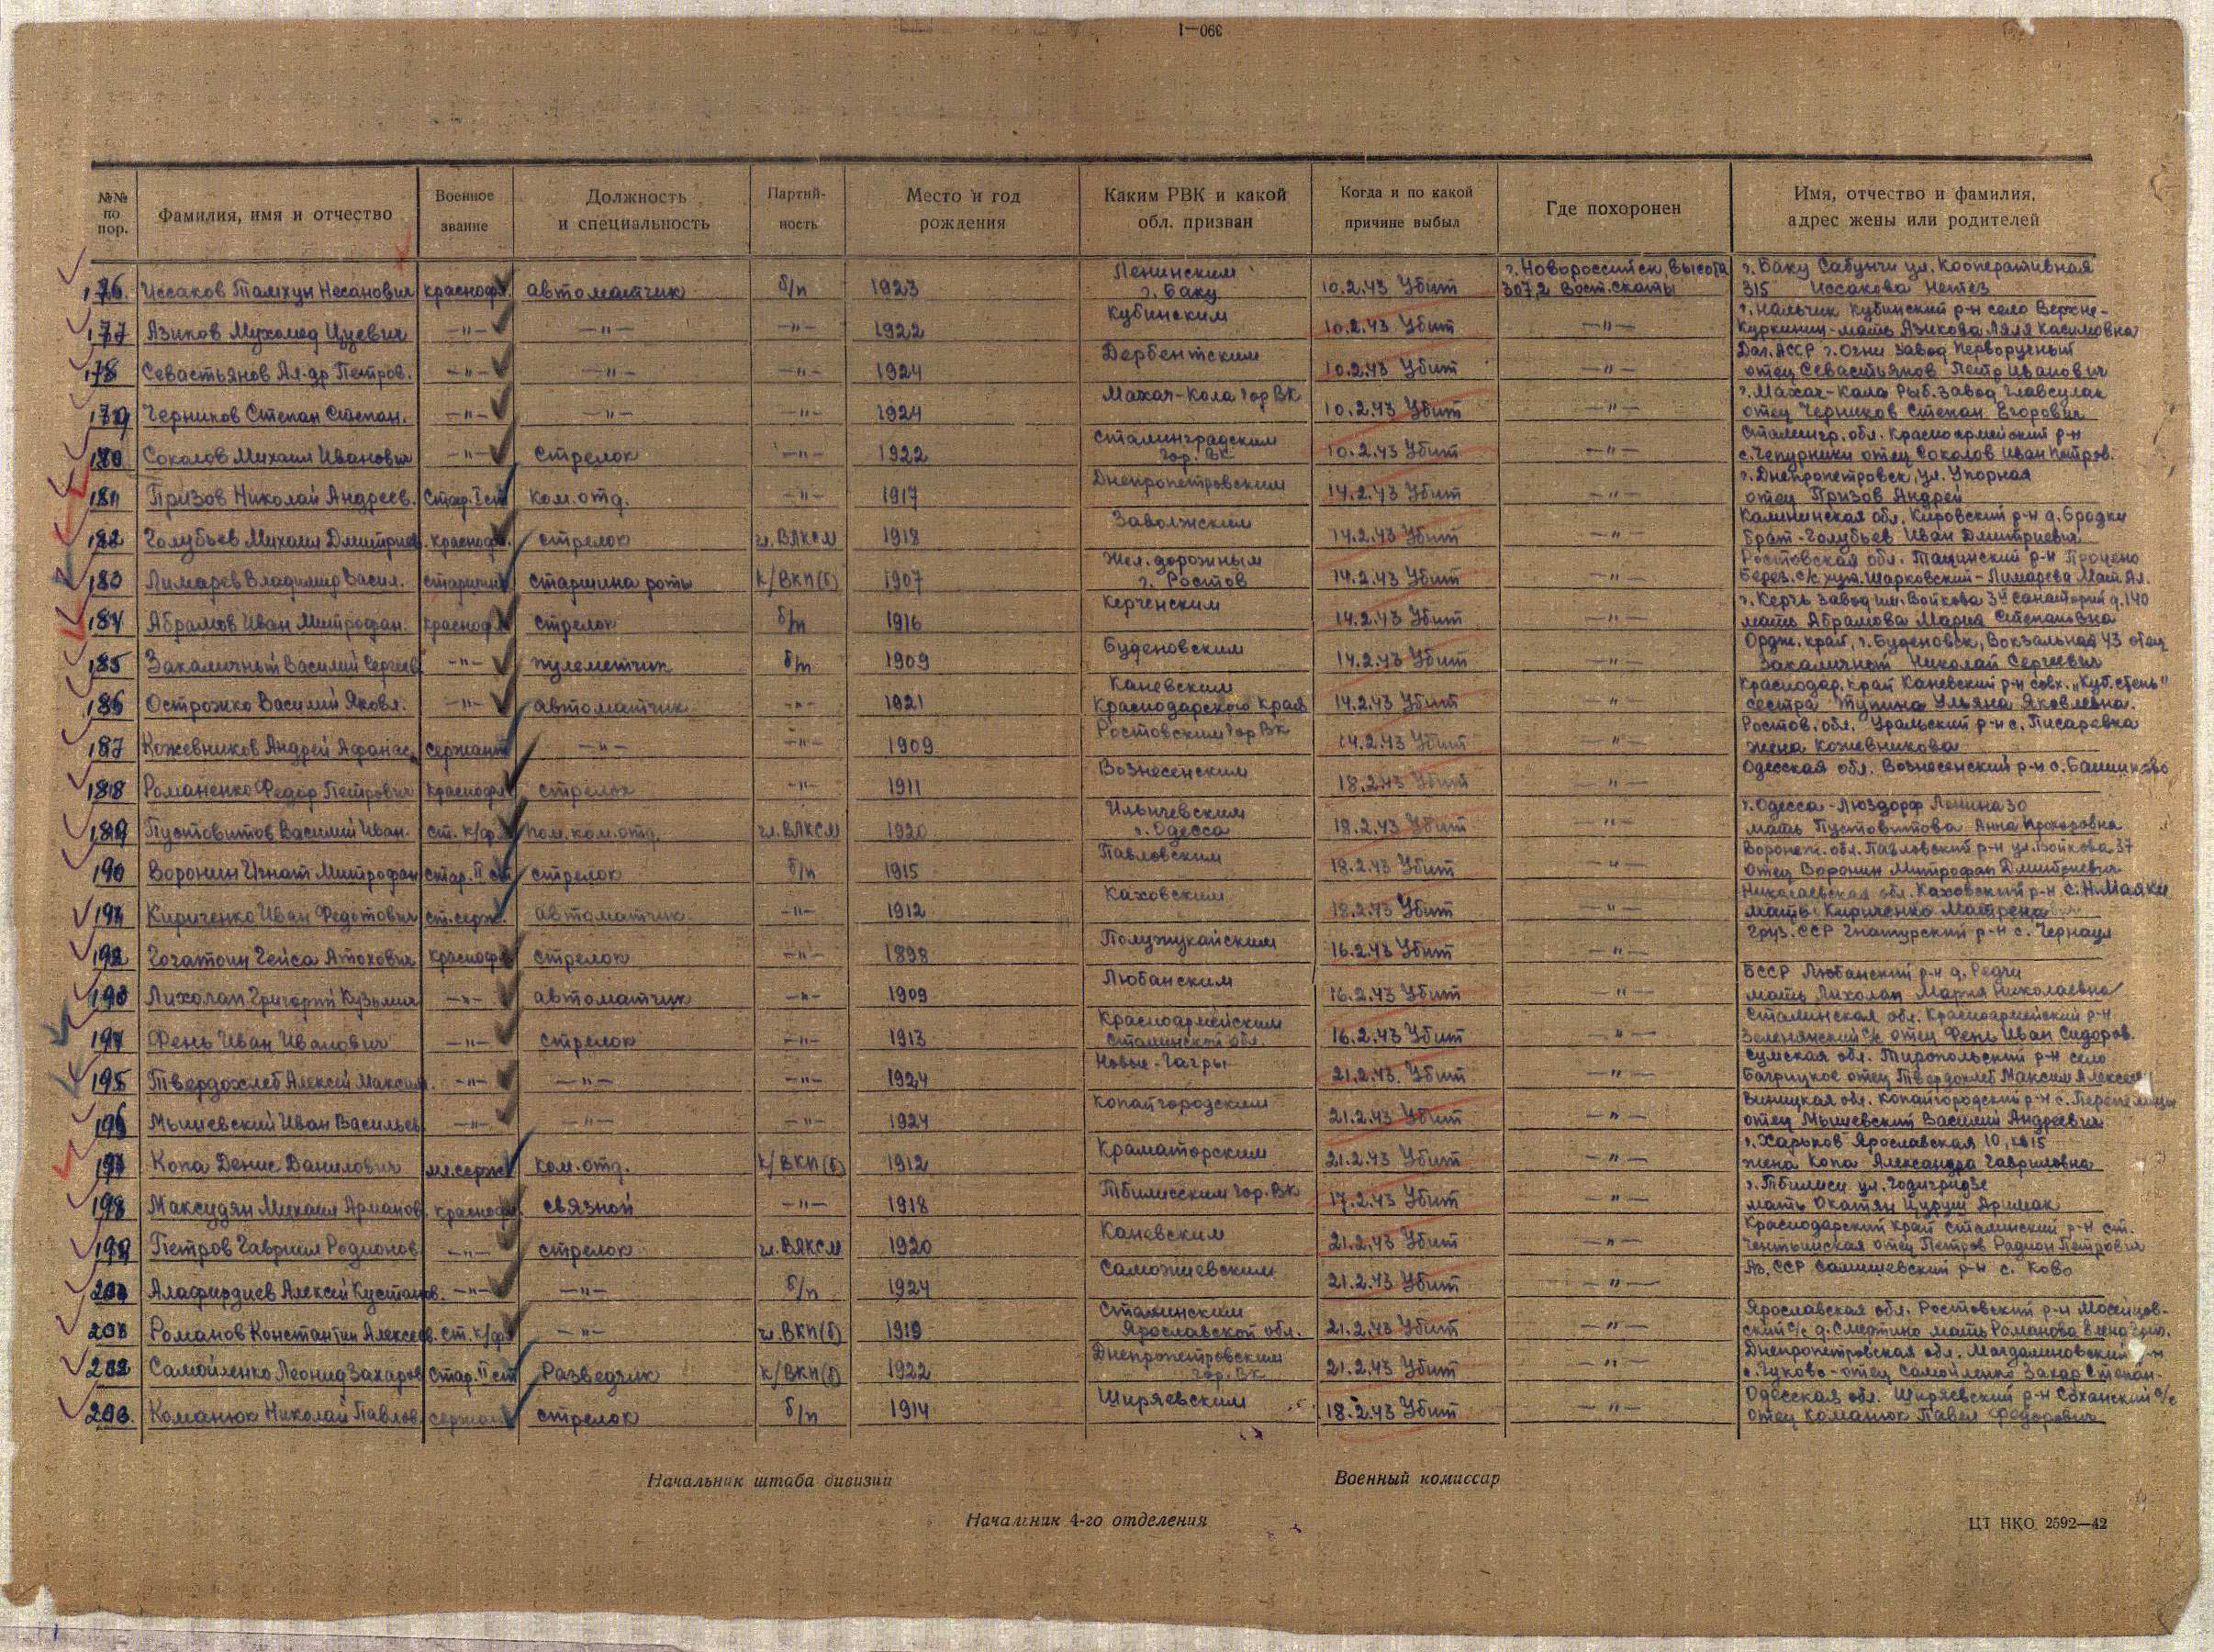 390—1
№№ по пор. Фамилия, имя и отчество Военное звание Должность и специальность Партий-ность Место и год рождения Каким РВК и какой обл. призван Когда и по какой причине выбыл Где похоронен Имя, отчество и фамилия, адрес жены или родителей
176. Иссаков Талхун Несанович краснофл. автоматчик б/п 1923 Ленинским г. Баку 10.2.43 Убит г. Новороссийск, высота 307,2 Вост. скаты г. Баку Сабунчи ул. Кооперативная 315 Иссакова
177 Азиков Мухамед —"— —"— —"— 1922 Кубинским 10.2.43 Убит —"— г. Нальчик Кубинский р-н село Верхне-Куркинин-мать Азикова Ляля Касимовна
178 Севастьянов Ал-др Петров. —"— —"— —"— 1924 Дербентским 10.2.43 Убит —"— Даг. АССР г. Огни завод отец Севастьянов Петр Иванович
179 Черников Степан Степан. —"— —"— —"— 1924 Махач-Кала Гор ВК 10.2.43 Убит —"— г. Махач-Кала Рыб. завод отец Черников Степан Егорович
180 Соколов Михаил Иванович —"— стрелок —"— 1922 Сталинградским гор. ВК 10.2.43 Убит —"— Сталингр. обл. Красноармейский р-н с. Чепурники отец Соколов Иван Петров.
181 Призов Николай Андреев. Стар. I ст ком. отд. —"— 1917 Днепропетровским 14.2.43 Убит —"— г. Днепропетровск, ул. Упорная отец Призов Андрей
182 Голубьев Михаил Дмитриев. краснофл. стрелок чл. ВЛКСМ 1918 Заволжским 14.2.43 Убит —"— Калининская обл. Кировский р-н д. Бродки брат-Голубьев Иван Дмитриевич
183 Лимарев Владимир Васил. старшина старшина роты к/ВКП(б) 1907 Жел. дорожным г. Ростов 14.2.43 Убит —"— Ростовская обл. Тацинский р-н Берез. с/с хут. Шарковский-Лимарева Мат. Ал.
184 Абрамов Иван Митрофан. краснофл. стрелок б/п 1916 Керченским 14.2.43 Убит —"— г. Керчь завод им. Войкова д. 140 мать Абрамова Мария Степановна
185 Закаличный Василий Сергеев —"— пулеметчик б/п 1909 Буденовским 14.2.43 Убит —"— Ордж. край, г. Буденовск, Вокзальная 43 отец Закаличный Николай Сергеевич
186 Острожко Василий Яковл. —"— автоматчик —"— 1921 Каневским Краснодарского края 14.2.43 Убит —"— Краснодар. край Каневский р-н совх. „Куб. степь" сестра Тупина Ульяна Яковлевна.
187 Кожевников Андрей Афанас. сержант —"— —"— 1909 Ростовским Гор ВК 14.2.43 Убит —"— Ростов. обл. Уральский р-н с. Писаревка жена Кожевникова
188 Романенко Федор Петрович краснофл. стрелок —"— 1911 Вознесенским 18.2.43 Убит —"— Одесская обл. Вознесенский р-н
189 Пустовитов Василий Иван. ст. к/фл пом. ком. отд. чл. ВЛКСМ 1920 Ильичевским г. Одесса 18.2.43 Убит —"— г. Одесса-Люздорф Ленина 30 мать Пустовитова Анна Прохоровна
190 Воронин Игнат Митрофан стар. II ст стрелок б/п 1915 Павловским 18.2.43 Убит —"— Воронеж. обл. Павловский р-н ул. Войкова 37 отец Воронин Митрофан Дмитриевич
191 Кириченко Иван Федотович ст. серж. автоматчик —"— 1912 Каховским 18.2.43 Убит —"— Николаевская обл. Каховский р-н с. Н. Маяки мать Кириченко Матрена
192 Гогатош Гейса Атохович краснофл стрелок —"— 1898 16.2.43 Убит —"— Груз. ССР р-н с.
193 Лихолап Григорий Кузьмич —"— автоматчик —"— 1909 Любанским 16.2.43 Убит —"— БССР Любанский р-н д. Редчи мать Лихолап Мария Николаевна
194 Фень Иван Иванович —"— стрелок —"— 1913 Красноармейским Сталинской обл. 16.2.43 Убит —"— Сталинская обл. Красноармейский р-н с/с отец Фень Иван Сидоров.
195 Твердохлеб Алексей Максим. —"— —"— —"— 1924 Новые-Гагры 21.2.43. Убит —"— Сумская обл. Миропольский р-н село отец Твердохлеб Максим Алексеев
196 Мышевский Иван Васильев —"— —"— —"— 1924 Копайгородским 21.2.43 Убит —"— Виницкая обл. Копайгородский р-н с. отец Мышевский Василий Андреевич
197 Копа Денис Данилович мл. серж ком. отд. к/ВКП(б) 1912 Краматорским 21.2.43 Убит —"— г. Харьков Ярославская 10, кв 15 жена Копа Александра Гавриловна
198 Максудян Михаил Арманов. краснофл. связной —"— 1918 Тбилисским гор. ВК 17.2.43 Убит —"— г. Тбилиси ул. мать Окатян
199 Петров Гавриил Родионов —"— стрелок чл. ВЛКСМ 1920 Каневским 21.2.43 Убит —"— Краснодарский край Сталинский р-н ст. отец Петров Радион Петрович
200 Алафирдиев Алексей —"— —"— б/п 1924 21.2.43 Убит —"— Аз. ССР р-н с. Ково
201 Романов Константин Алексеев. ст. к/фл —"— чл. ВКП(б) 1919 Сталинским Ярославской обл. 21.2.43 Убит —"— Ярославская обл. Ростовский р-н с/с д. мать Романова
202 Самойленко Леонид Захаров Стар. II ст Разведчик к/ВКП(б) 1922 Днепропетровским гор. ВК 21.2.43 Убит —"— Днепропетровская обл. Магдалиновский р-н с. отец Самойленко Захар Степан-
203. Команюк Николай Павлов сержант стрелок б/п 1914 Ширяевским 18.2.43 Убит —"— Одесская обл. Ширяевский р-н с/с отец Команюк Павел Федорович
Начальник штаба дивизии Военный комиссар
Начальник 4-го отделения
ЦТ НКО 2592—42